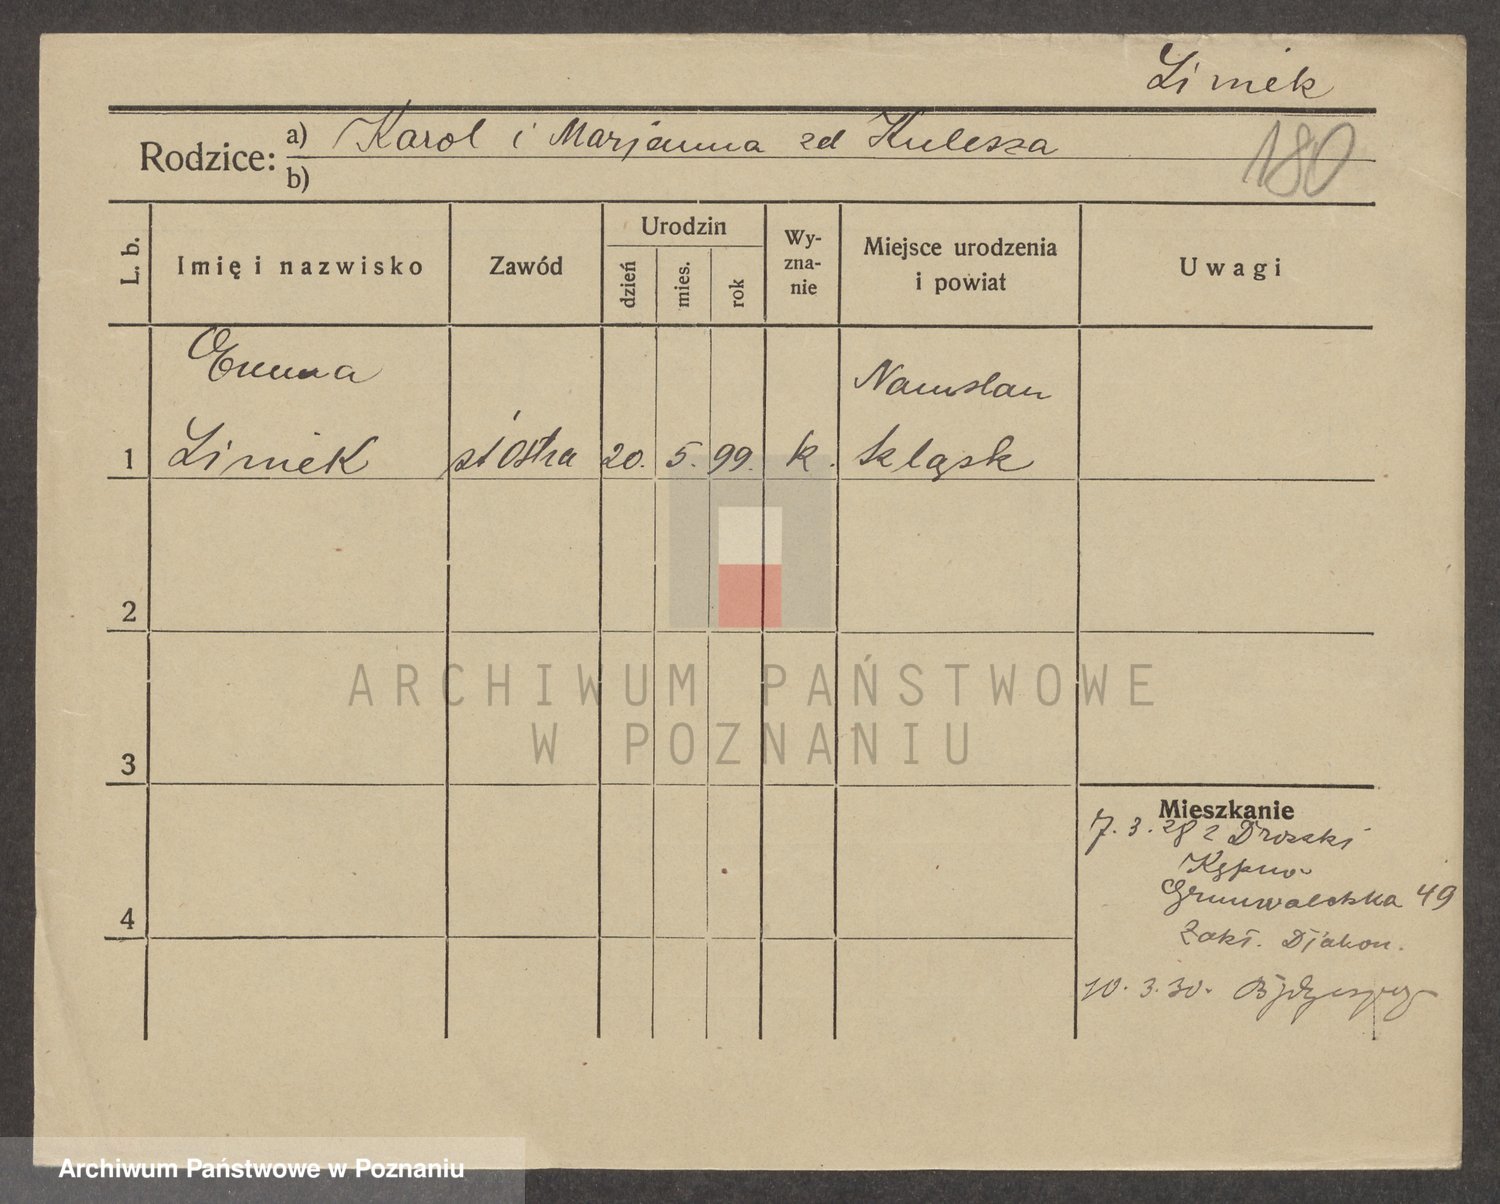 Limek
Rodzice: a) Karol i Marjanna zd Kulesza
b)
180
L. b.
Imię i nazwisko
Zawód
Urodzin
dzień
mies.
rok
Wy-
zna-
nie
Miejsce urodzenia
i powiat
Uwagi
Emma
Namslau
1 Limek siostra 20. 5. 99. k. Skląsk
2
3
4
ARCHIWUM PAŃSTWOWE
W POZNANIU
Mieszkanie
7. 3. 28 z Droszki
Kępno
Grunwaldzka 49
Zakł. Djakon.
10. 3. 30. Bydgoszcz
Archiwum Państwowe w Poznaniu